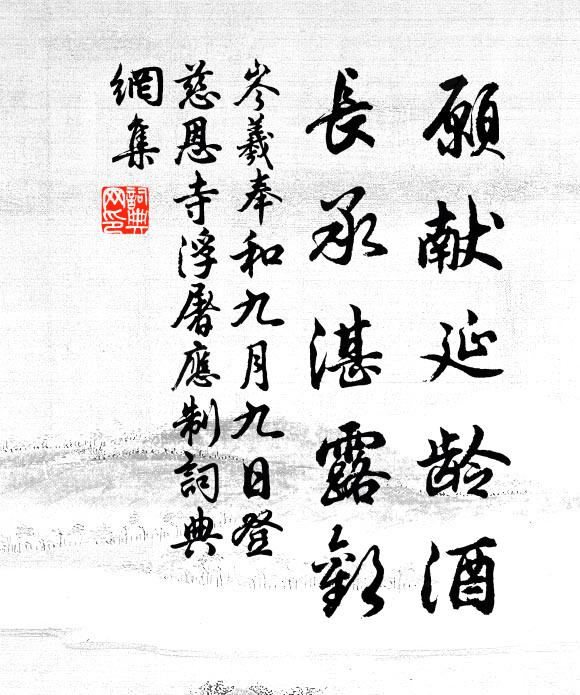 願献延龄酒
長承湛露歡
岑羲奉和九月九日登
慈恩寺浮屠應制詞典
網集
詞典
网印